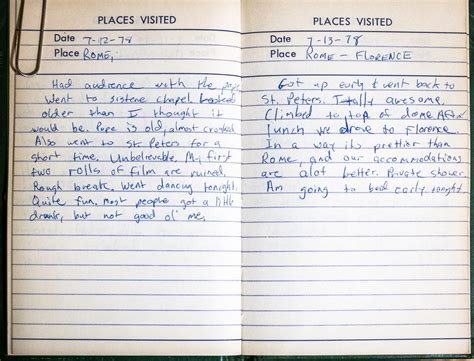 PLACES VISITED
Date 7-12-78
Place ROME,
Had audience with the pope
Went to sistene chapel looked
older than I thought it
would be. Pope is old, almost croaked
Also went to St Peters for a
short time. Unbelievable. My first
two rolls of film are ruined.
Rough break. Went dancing tonight.
Quite fun, most people got a little
drunk, but not good ol' me.
PLACES VISITED
Date 7-13-78
Place ROME - FLORENCE
Got up early & went back to
St. Peters. Totally awesome.
Climbed to top of dome After
lunch we drove to Florence.
In a way its prettier than
Rome, and our accommodations
are alot better. Private shower.
Am going to bed early tonight